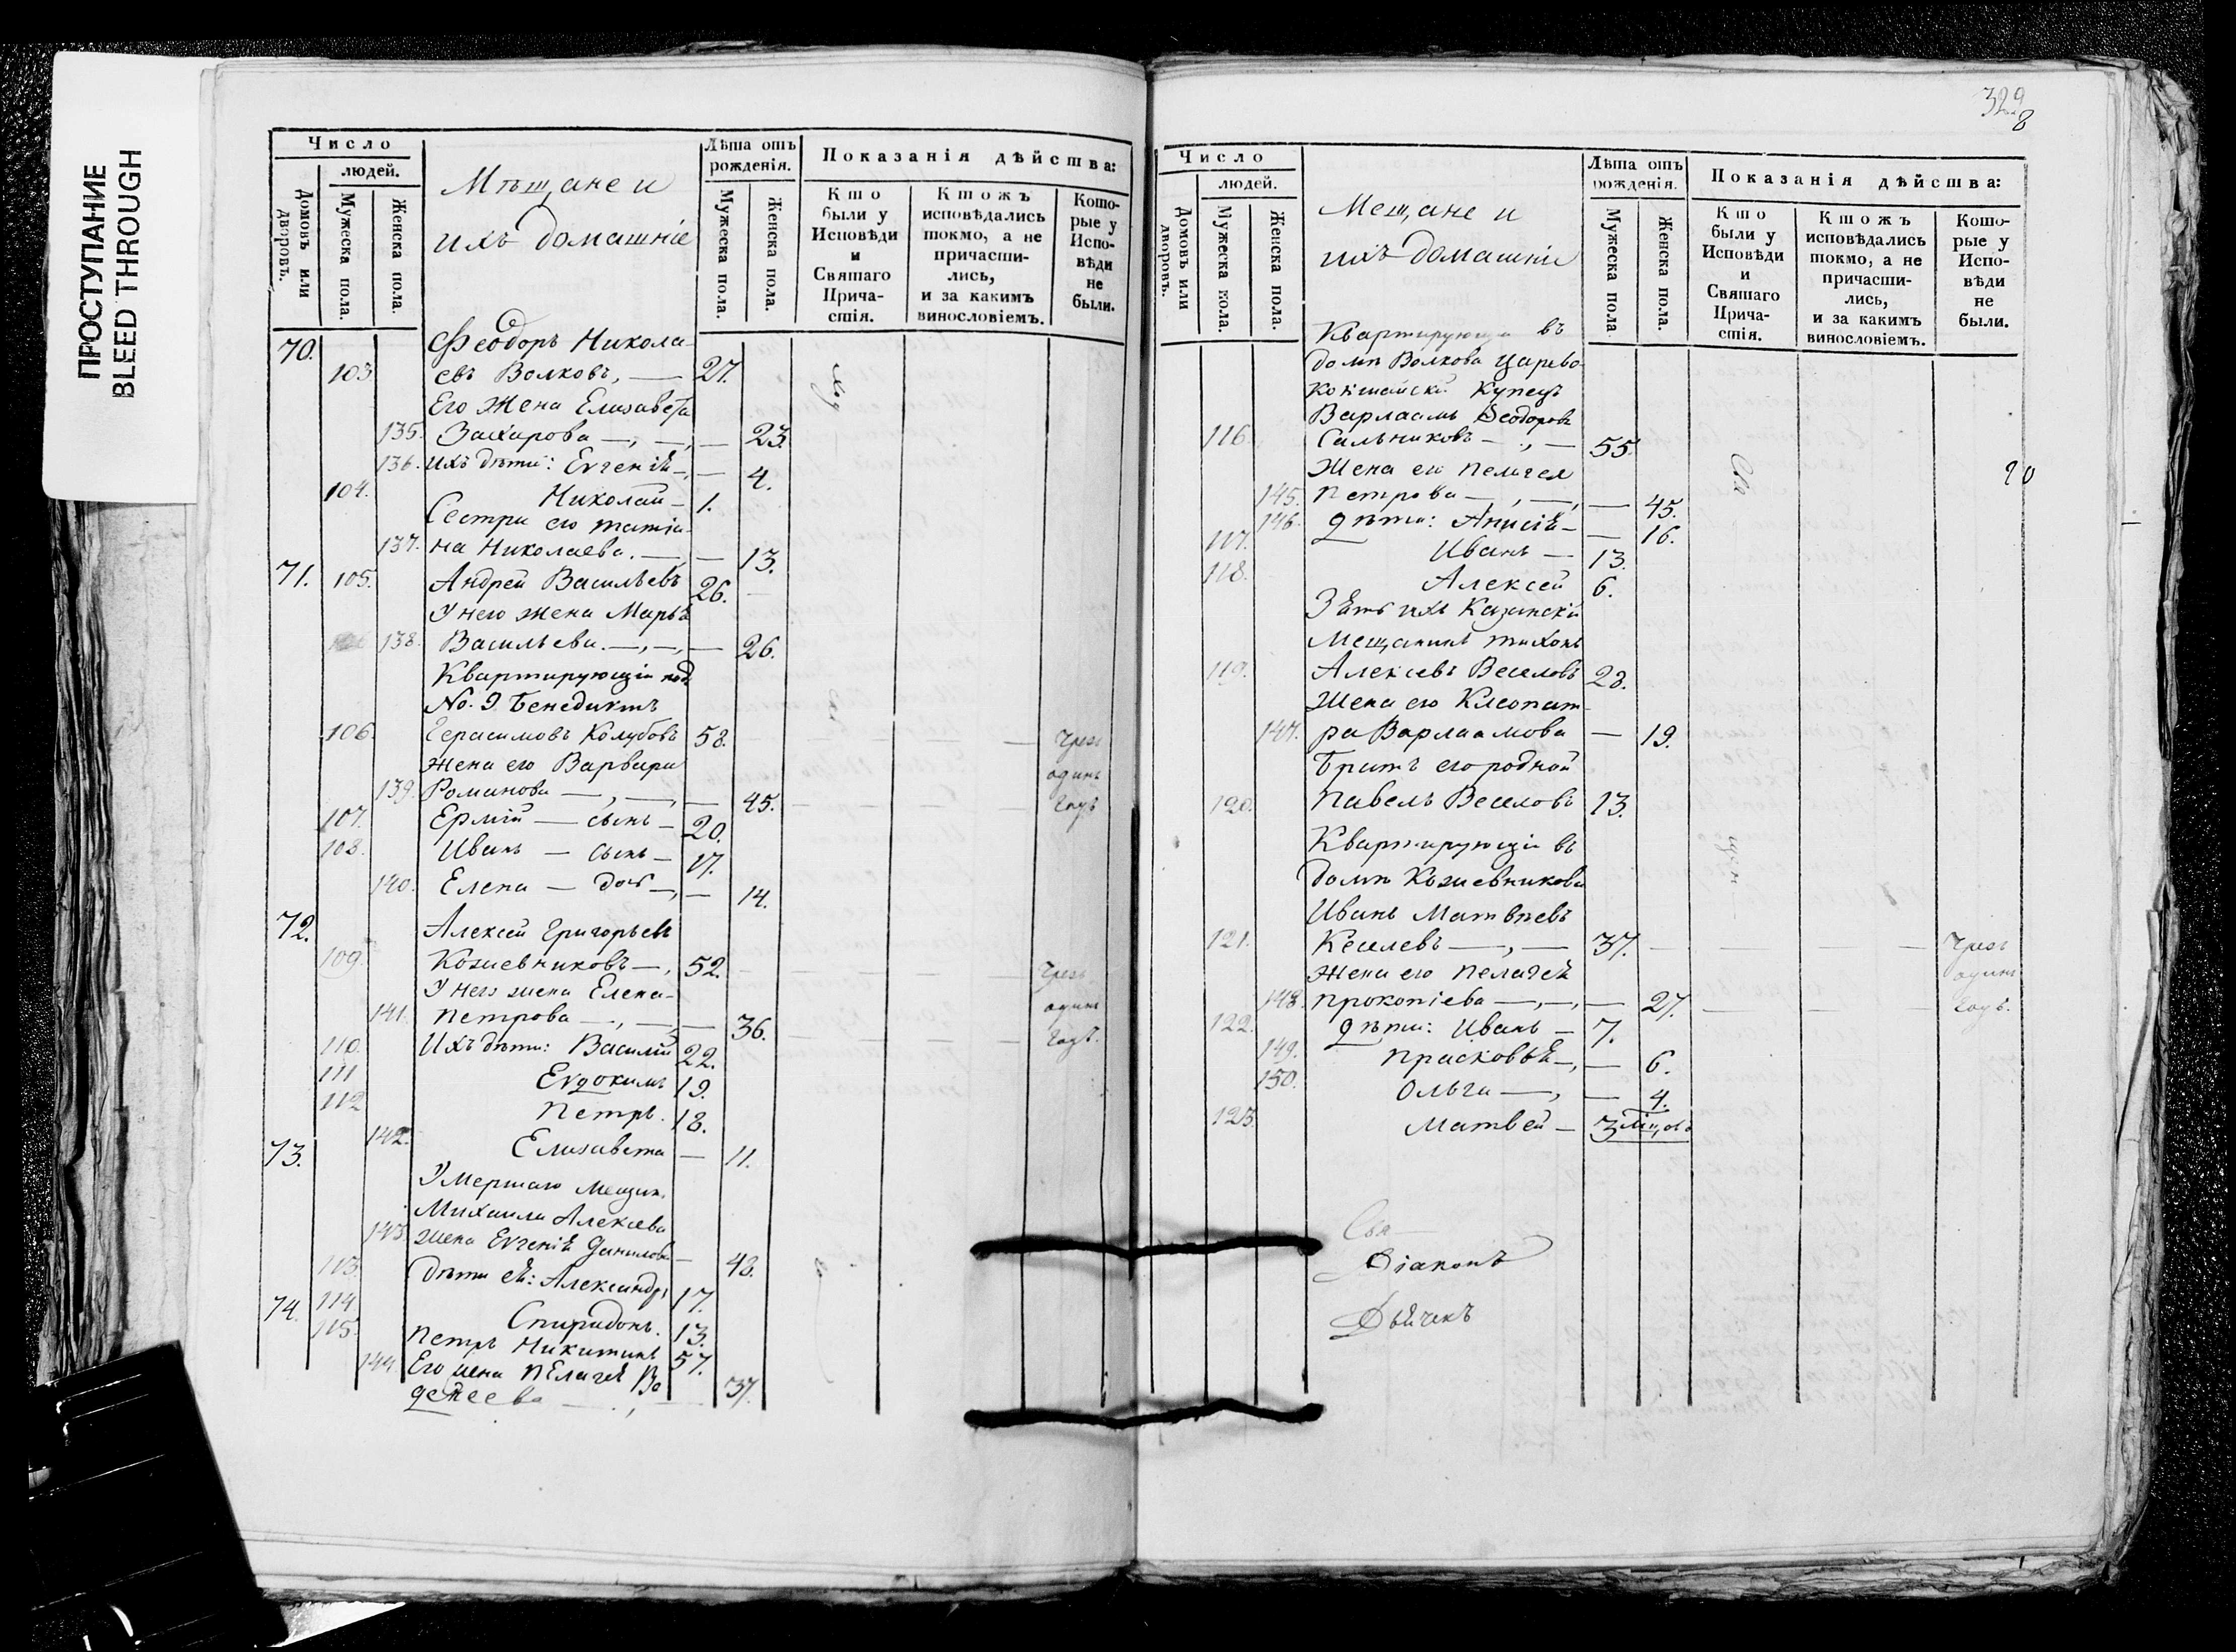 ПРОСТУПАНИЕ
BLEED THROUGH
Число
людей.
Домовъ или дворовъ.
Мужеска пола.
Женска пола.
Мѣщане и
ихъ домашніе
Лѣта отъ
рожденія.
Мужеска пола.
Женска пола.
Показанія дѣйства:
Кто
были у
Исповѣди
и
Святаго
Прича-
стія.
Ктожъ
исповѣдались
токмо, а не
причасти-
лись,
и за какимъ
винословіемъ.
Кото-
рые у
Испо-
вѣди
не
были.
70. Ѳеодоръ Никола-
103 евъ Волковъ, — 27.
Его жена Елизавета
135. Захарова —, —, — 23.
136. Ихъ дѣти: Евгенія —, — 4.
104. Николай — 1.
Сестра его Татіа-
137. на Николаева. —, — 13.
71. 105. Андрей Васильевъ 26.
У него жена Марья
138. Васильева. —, —, — 26.
Квартирующіи под
No. 9 Бенедиктъ
106. Герасимовъ Колубовъ 58. — Чрез
Жена его Варвара одинъ
139. Романова —, —, — 45. — годъ
107. Ермій — сынъ — 20.
108. Иванъ — сынъ — 17.
140. Елена — дочь —, — 14.
72. Алексей Григорьевъ
109. Кожевниковъ —, 52. — Чрез
У него жена Елена — одинъ
141. Петрова —, —, — 36. — годъ.
110. Ихъ дѣти: Василій 22.
111 Евдокимъ 19.
112 Петръ. 18.
142. Елизавета — 11.
73. Умершаго мещан.
Михаила Алексева
143. жена Евгенія Данилова — 48.
113. Дѣти ея: Александръ 17.
114. Спиридонъ. 13.
74. 115. Петръ Никитинъ 57.
144. Его жена Пелагея
— 37.
329
8
Число
людей.
Домовъ или дворовъ.
Мужеска пола.
Женска пола.
Мещане и
ихъ домашніи
Лѣта отъ
рожденія.
Мужеска пола
Женска пола.
Показанія дѣйства:
Кто
были у
Исповѣди
и
Святаго
Прича-
стія.
Ктожъ
исповѣдались
токмо, а не
причасти-
лись,
и за какимъ
винословіемъ.
Кото-
рые у
Испо-
вѣди
не
были.
Квартирующіи въ
домѣ Волкова Царево-
кокшайскій Купецъ
Варлаамъ Ѳеодоровъ
116. Сальниковъ —, — 55.
Жена его Пелагея
145. Петрова —, —, — 45.
146. Дѣти: Анисія — — 16.
117. Иванъ — 13.
118. Алексей 6.
Зять ихъ Казанскій
Мещанинъ Тихонъ
119. Алексевъ Веселовъ 28.
Жена его Клеопат-
147. ра Варлаамова — 19.
Братъ его родной
120. Павелъ Веселовъ 13.
Квартирующіи въ
домѣ Кожевникова
Иванъ Матвѣевъ
121. Киселевъ —, — 37. — Чрез
Жена его Пелагея одинъ
148. Прокопіева —, —, — 27. — годъ.
122. Дѣти: Иванъ — 7.
149. Прасковья —, — 6.
150. Ольга —, — 4.
123. Матвей — 3 Мѣсцов.
Діаконъ
Дьячекъ